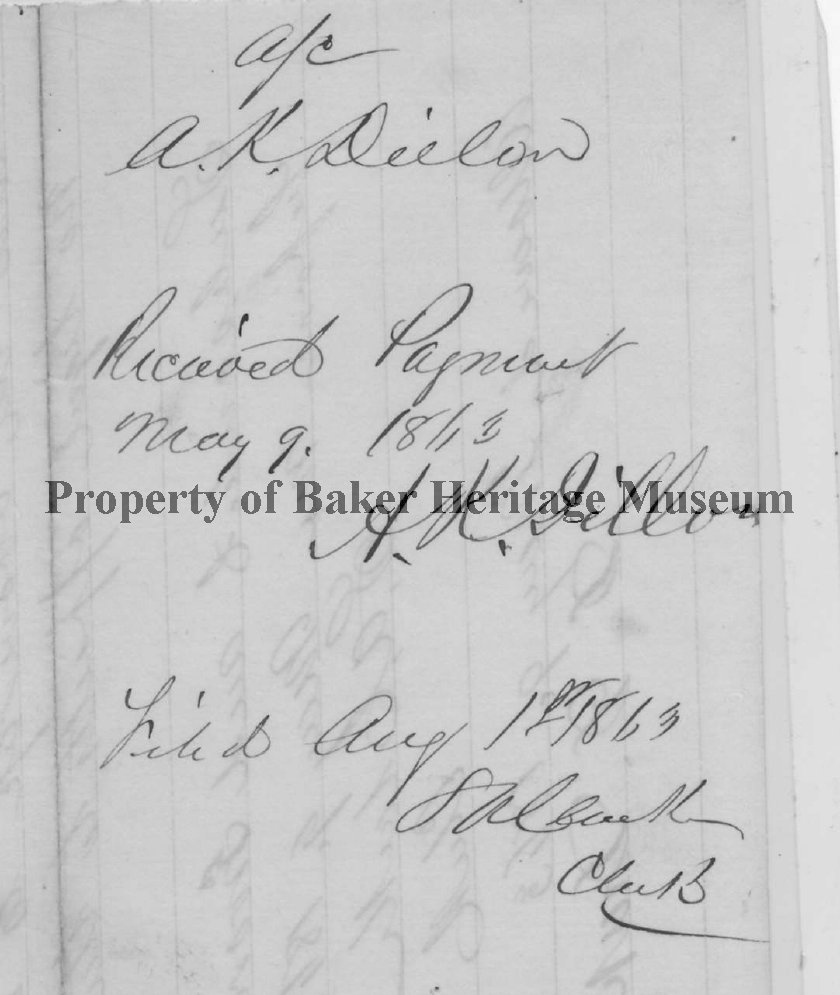 a/c
A. K. Dillon
Received Payment
May 9. 1863
Property of Baker Heritage Museum
A. K. Dillon
Filed Aug 1st 1863
Clerk